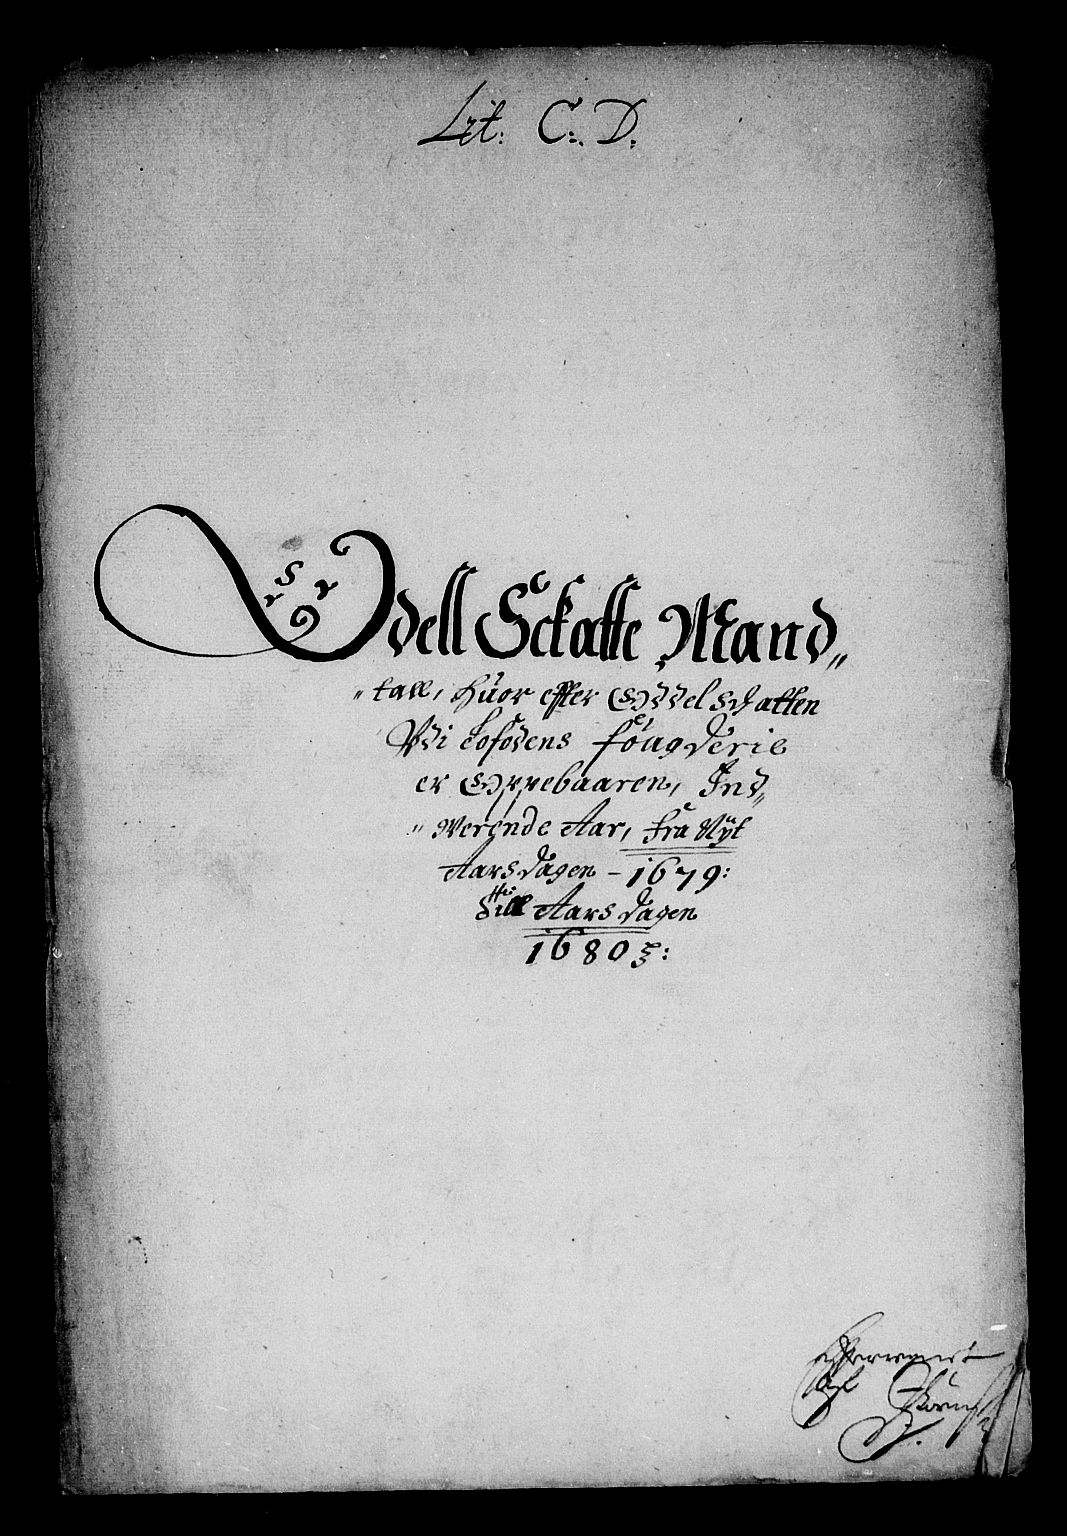 Lit: C: D:
Odell Sckatte Mand„
„tall, huor effter Oddel Schatten
Udi Lofodens fougderie
er Oppebaaren, Ind„
„Werende Aar, fra Nyt
Aarsdagen – 1679:
till Aars dagen
1680: